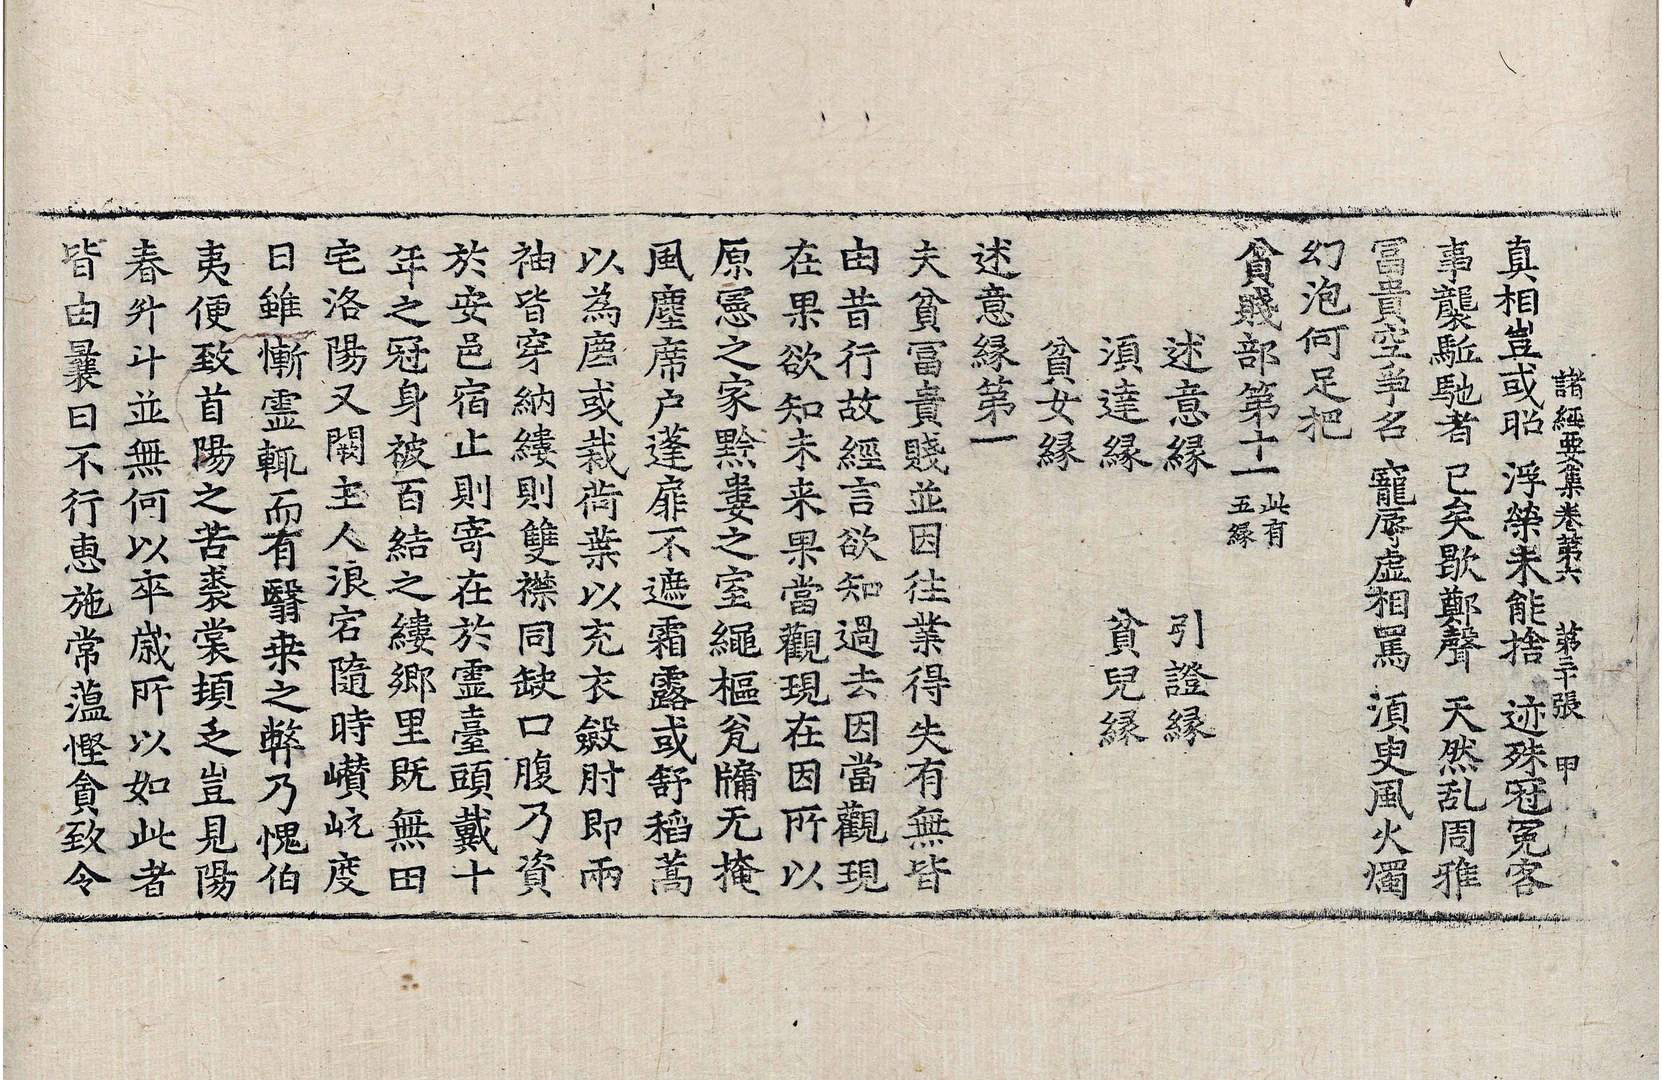 諸經要集卷第六 第三十張 甲
真相豈或昭 浮榮未能捨 迹殊冠冕客
事襲駈馳者 已矣歇鄭聲 天然乱周雅
冨貴空爭名 寵辱虛相罵 湏臾風火燭
幻泡何足把
貧賤部第十一 此有五縁
述意縁 引證縁
湏達縁 貧兒縁
貧女縁
述意縁第一
夫貧冨貴賤並因往業得失有無皆
由昔行故經言欲知過去因當觀現
在果欲知未来果當觀現在因所以
原憲之家黔婁之室繩樞瓮牖无掩
風塵席户蓬扉不遮霜露或舒稻蒿
以為廗或裁荷葉以充衣斂肘即兩
袖皆穿納縷則雙襟同缺口腹乃資
於安邑宿止則寄在於霊臺頭戴十
年之冠身被百結之縷鄉里既無田
宅洛陽又闕主人浪宕隨時巑岏度
日雖慚霊輒而有翳桒之弊乃愧伯
夷便致首陽之苦裘裳頓乏豈見陽
春升斗並無何以卒歳所以如此者
皆由曩日不行恵施常薀慳貪致令